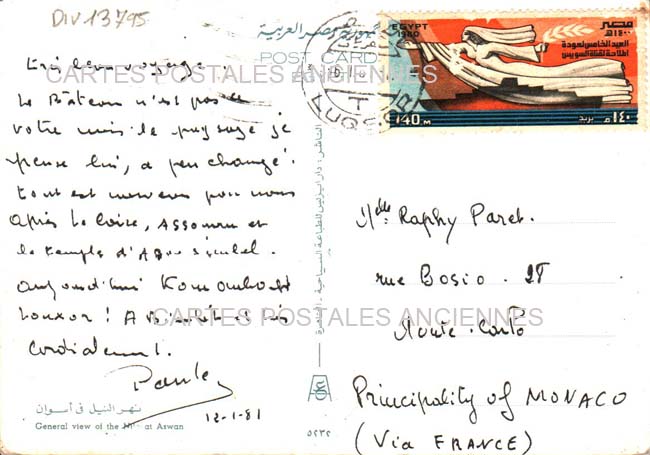 DIV 13795
جمهورية مصر العربية
POST CARD
CARTES POSTALES ANCIENNES
Très beau voyage
Le Bâteau n'est pas le
votre mais le paysage je
pense lui, a peu changé.
tout est nouveau pour nous
après Le Caire, Assouan et
le temple d'Abou simbel.
aujourd'hui Komombo et
Louxor ! A bientôt et
cordialement.
12-1-81
نهر النيل في أسوان
General view of the Nile at Aswan
٥٢٣٢
EGYPT
1980
مصر
١٤٠٠هـ
العيد الخامس لعودة
الملاحة لقناة السويس
140 M
بريد
١٤٠ م
LUQSOR
Mlle Raphy Paret.
rue Bosio. 2T
Monte-Carlo
CARTES POSTALES ANCIENNES
Principality of MONACO
(Via FRANCE)